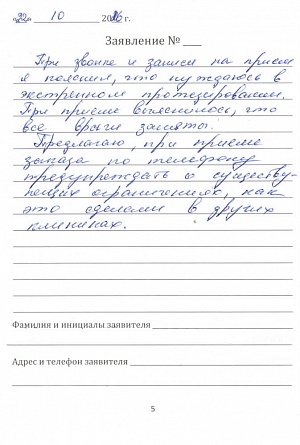 «22» 10 2016 г.
Заявление № ___
При звонке и записи на прием
я пояснил, что нуждаюсь в
экстренном протезировании.
При приеме выяснилось, что
все врачи заняты.
Предлагаю, при приеме
заказа по телефону
предупреждать о существу-
ющих ограничениях, как
это сделали в других
клиниках.
Фамилия и инициалы заявителя
Адрес и телефон заявителя
5